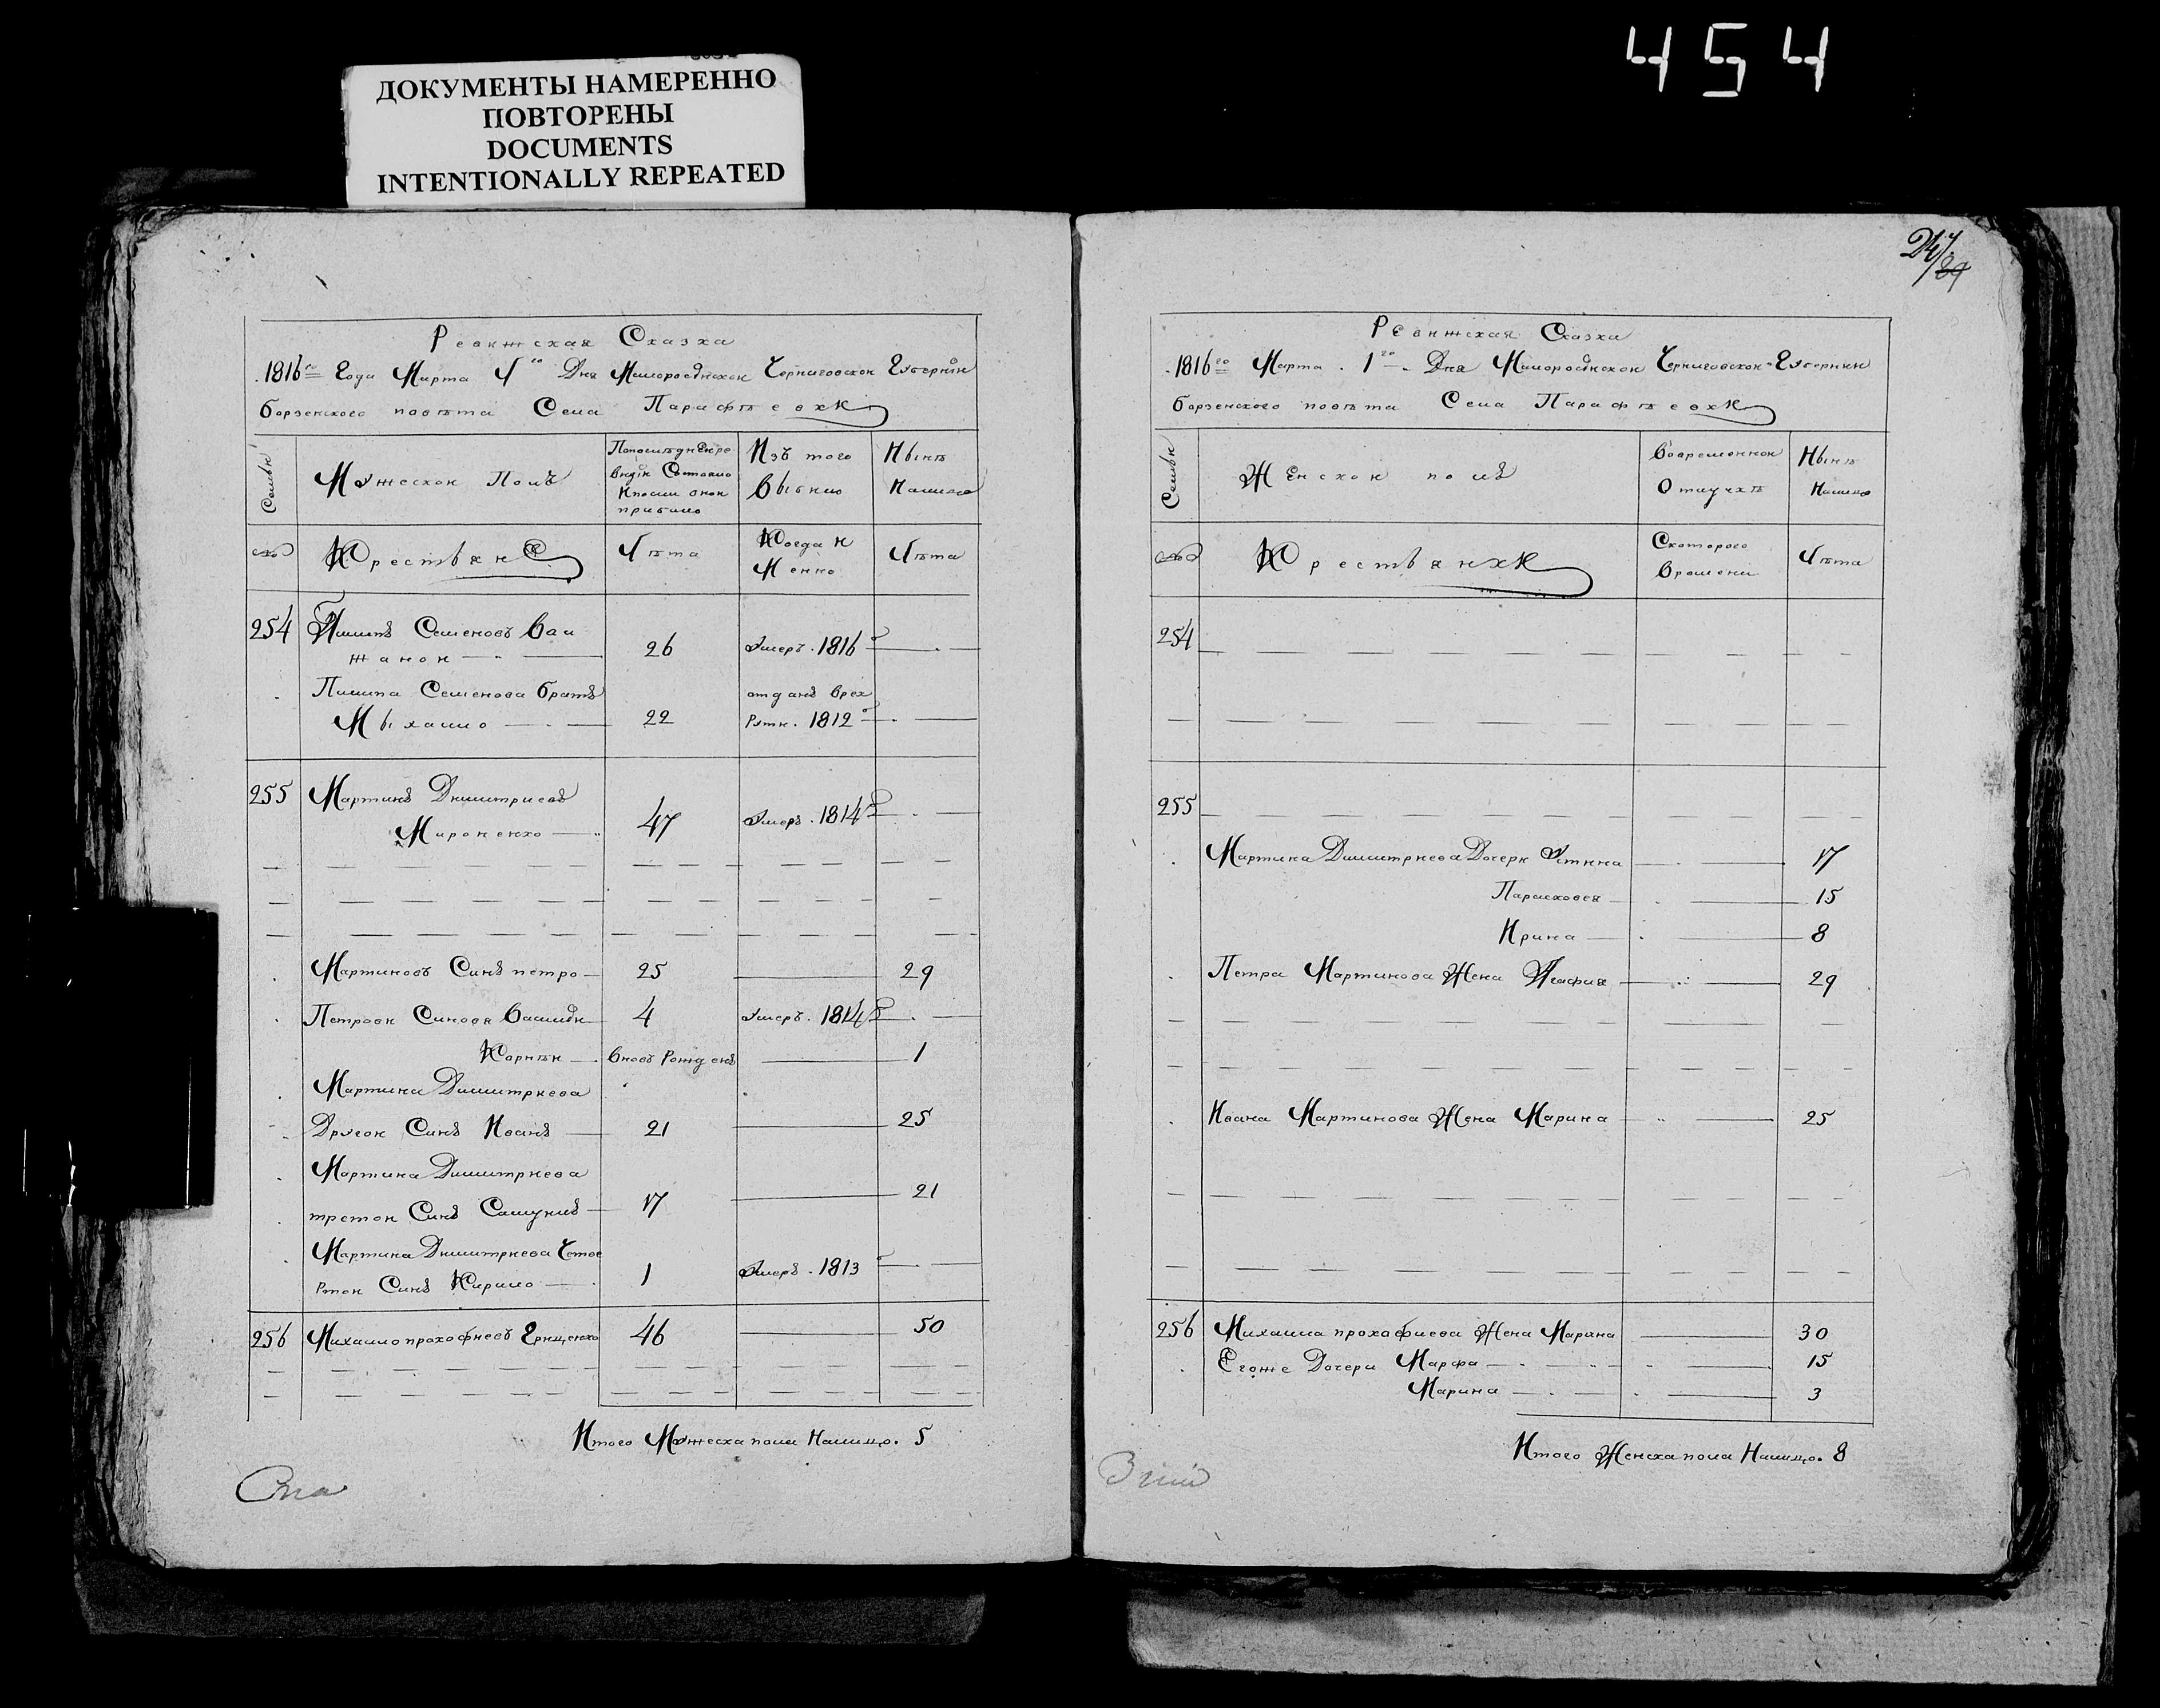 454
ДОКУМЕНТЫ НАМЕРЕННО
ПОВТОРЕНЫ
DOCUMENTS
INTENTIONALLY REPEATED
Ревижская Сказка
1816го Года Марта 1го Дня Малоросийской Черниговской Губерний
борзенского повѣта Села Парафѣевки
Семьи
Мужеской Полъ
Попоследней ре
визи Состояло
Ипосли оной
прибило
Изъ того
выбило
Нынѣ
Налицо
№
Крестьяне
Лѣта
Когда и
Менно
Лѣта
254 Пилипъ Семеновъ Вал
жаной 26 Умеръ. 1816
Пилипа Семенова братъ отданъ врек
Мыхайло 22 Рути. 1812
255 Мартинъ Димитриевъ
Мироненко 47 Умеръ. 1814
Мартиновъ Синъ петро 25 29
Петрови Синовя Василий 4 Умеръ. 1814
Корнѣй вновь Рожденъ 1
Мартина Димитриева
Другой Синъ Иванъ 21 25
Мартина Димитриева
третой Синъ Самуилъ 17 21
Мартина Димитриева Четве
ртой Синъ Кирило 1 Умеръ. 1813
256 Михайло прокофиевъ Грищенко 46 50
Итого Мужеска пола Налицо. 5
Ревижская Сказка
1816го Марта. 1го Дня Малоросийской Черниговской Губернии
борзенского повѣта Села Парафѣевки
Семьи
Женской полъ
Вовременной
Отлучкѣ
Нынѣ
Налицо
№
Крестьянки
Скоторого
Времени
Лѣта
254
255
Мартина Димитриева Дочери Устина 17
Парасковея 15
Ирина 8
Петра Мартинова Жена Агафия 29
Ивана Мартинова Жена Марина 25
256 Михайла прокофиева Жена Марина 30
Егоже Дочери Марфа 15
Марина 3
Итого Женска пола Налицо. 8